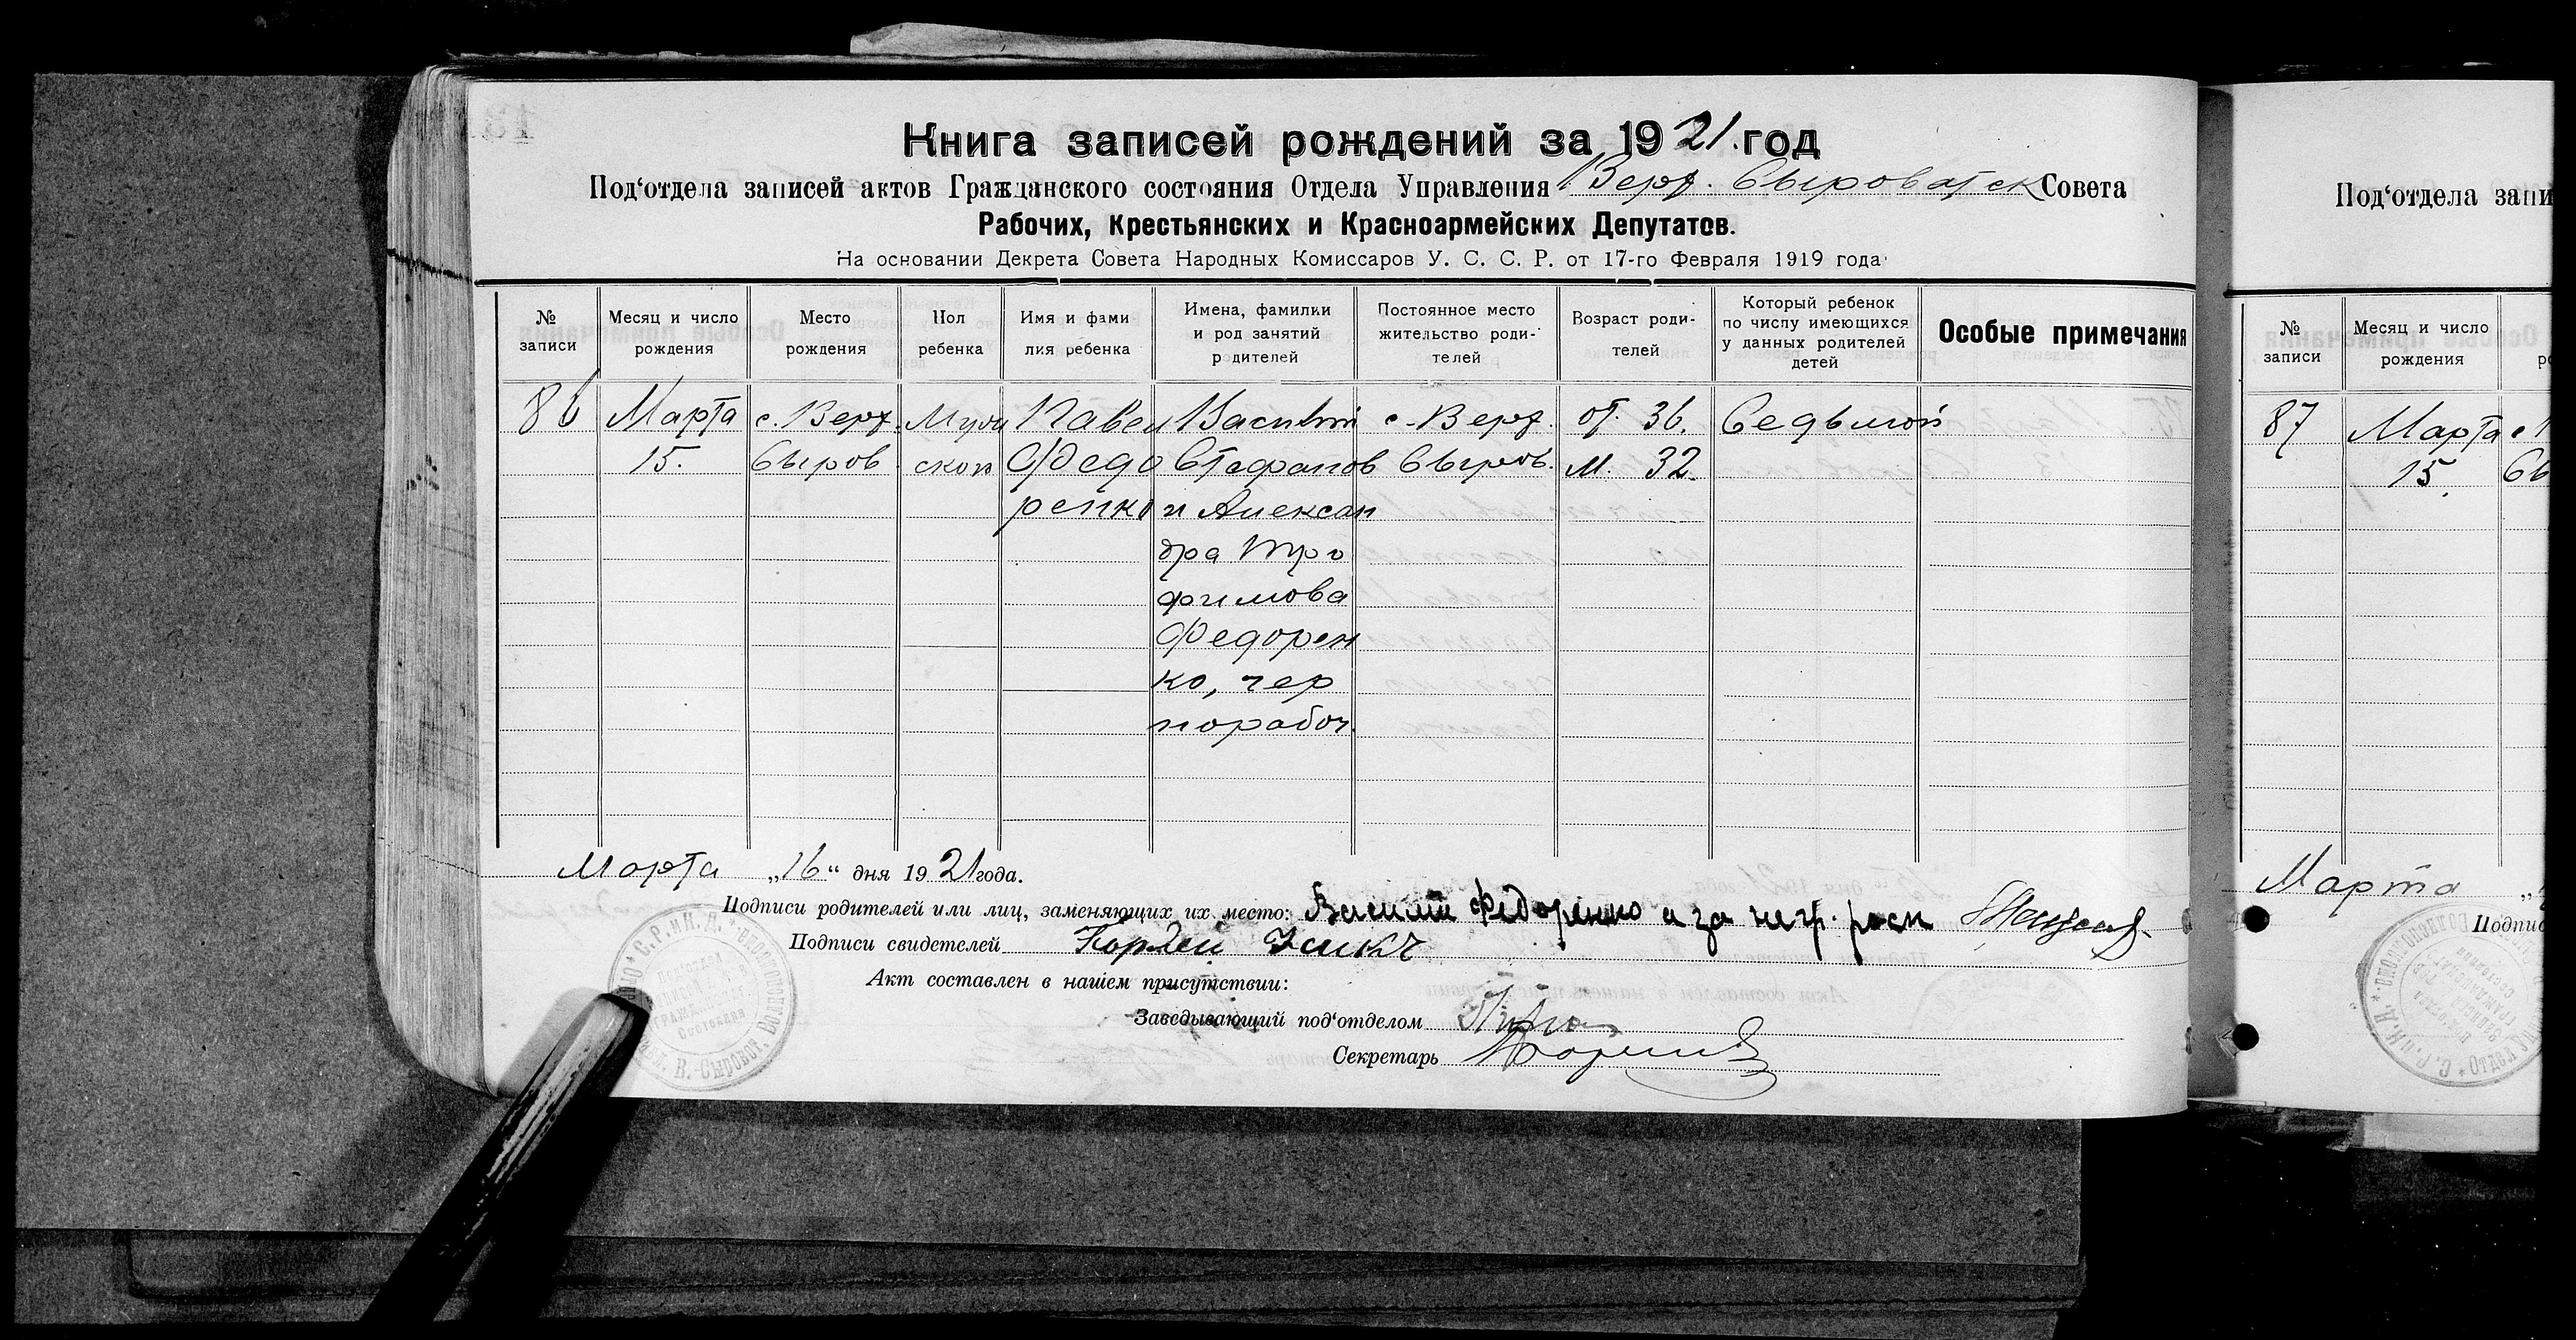 Книга записей рождений за 1921 год
Под'отдела записей актов Гражданского состояния Отдела Управления Верх. Сыроватск Совета
Рабочих, Крестьянских и Красноармейских Депутатов.
На основании Декрета Совета Народных Комиссаров У. С. С. Р. от 17-го Февраля 1919 года
№ записи
Месяц и число рождения
Место рождения
Пол ребенка
Имя и фами лия ребенка
Имена, фамилии и род занятий родителей
Постоянное место жительство роди- телей
Возраст роди- телей
Который ребенок по числу имеющихся у данных родителей детей
Особые примечания
86 Марта с. Верх. Муж Павел Василий с. Верх. от. 36. Седьмой
15. Сыров ской Федо Стефанов Сыров. м. 32.
ренко и Алексан
дра Тро
фимова
Федорен
ко, чер
норабоч.
Марта „16“ дня 1921 года.
Подписи родителей или лиц, заменяющих их место: Василий Федоренко а за негр. росп
Подписи свидетелей Кордей
Акт составлен в нашем присутствии:
Заведывающий под'отделом
Секретарь
Под'отдела запи
№ записи
Месяц и число рождения
87 Марта с
15. Сы
Марта
Подпис